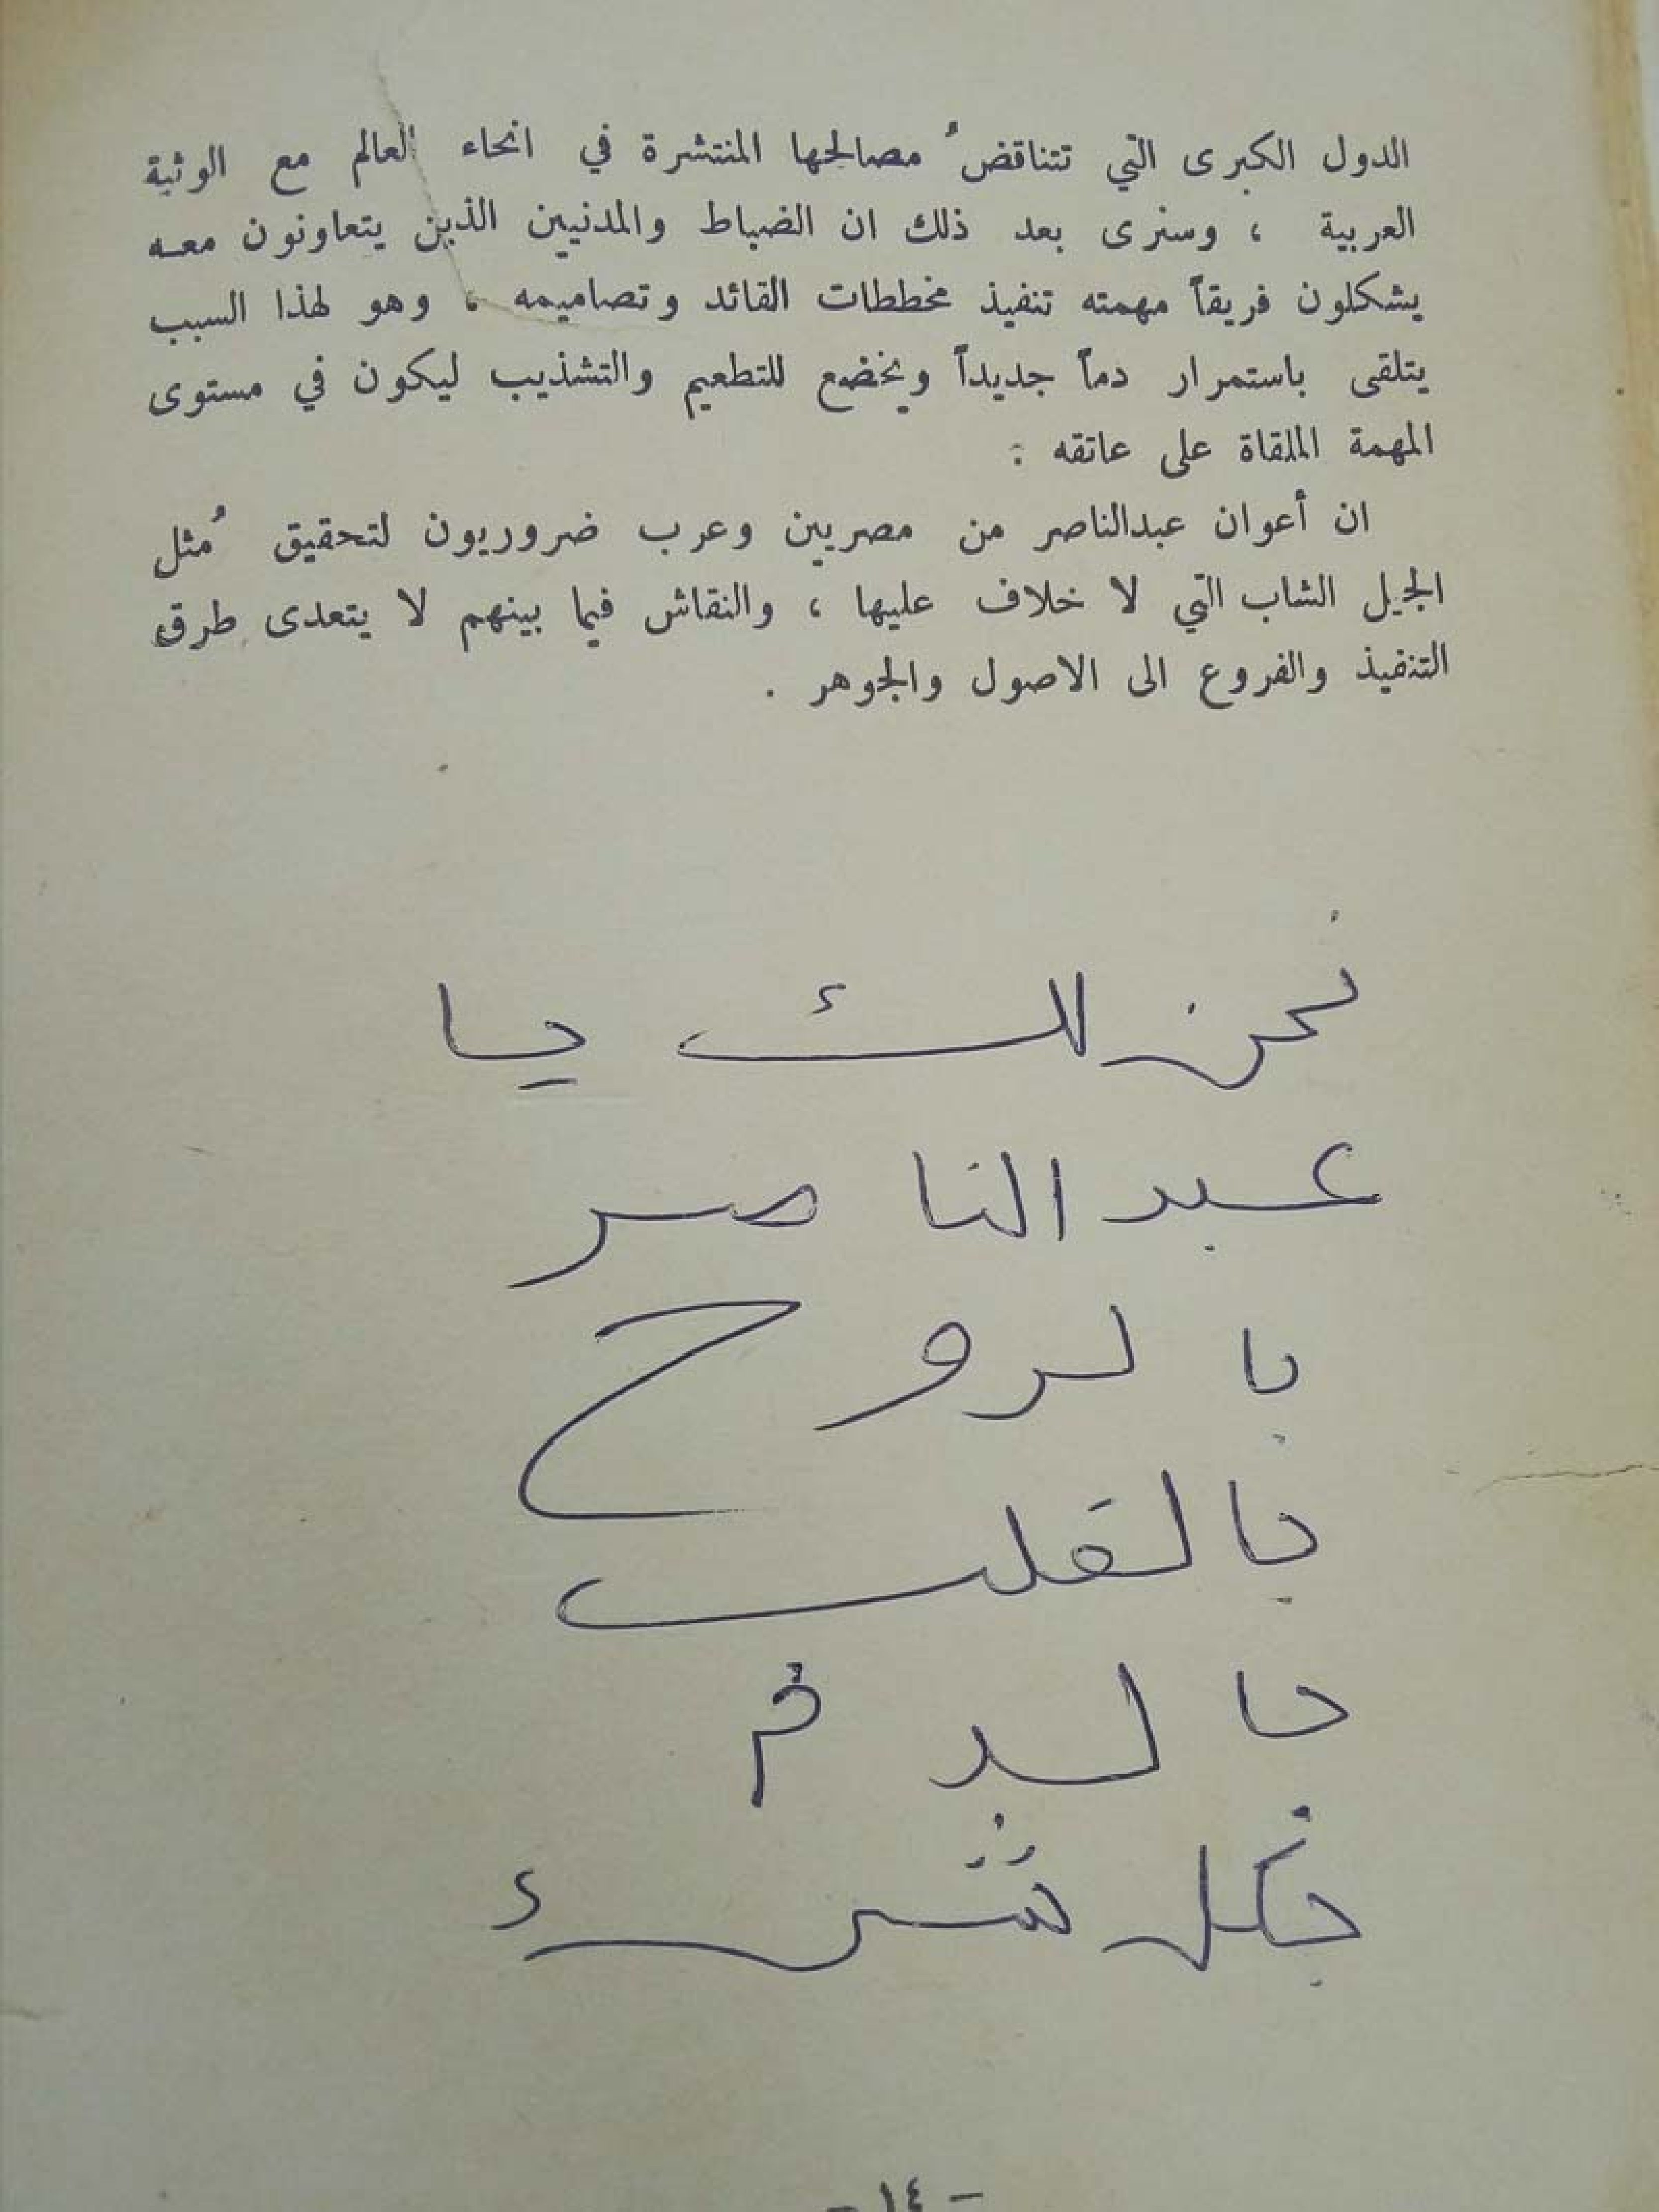 الدول الكبرى التي تتناقضُ مصالحها المنتشرة في انحاء العالم مع الوثبة
العربية ، وسنرى بعد ذلك ان الضباط والمدنيين الذين يتعاونون معه
يشكلون فريقاً مهمته تنفيذ مخططات القائد وتصاميمه ، وهو لهذا السبب
يتلقى باستمرار دماً جديداً ويخضع للتطعيم والتشذيب ليكون في مستوى
المهمة الملقاة على عاتقه :
ان أعوان عبدالناصر من مصريين وعرب ضروريون لتحقيق مُثل
الجيل الشاب التي لا خلاف عليها ، والنقاش فيما بينهم لا يتعدى طرق
التنفيذ والفروع الى الاصول والجوهر .
نحن لك يا
عبد الناصر
بالروح
بالقلب
بالدم
بكل شيء
- ١٤ -